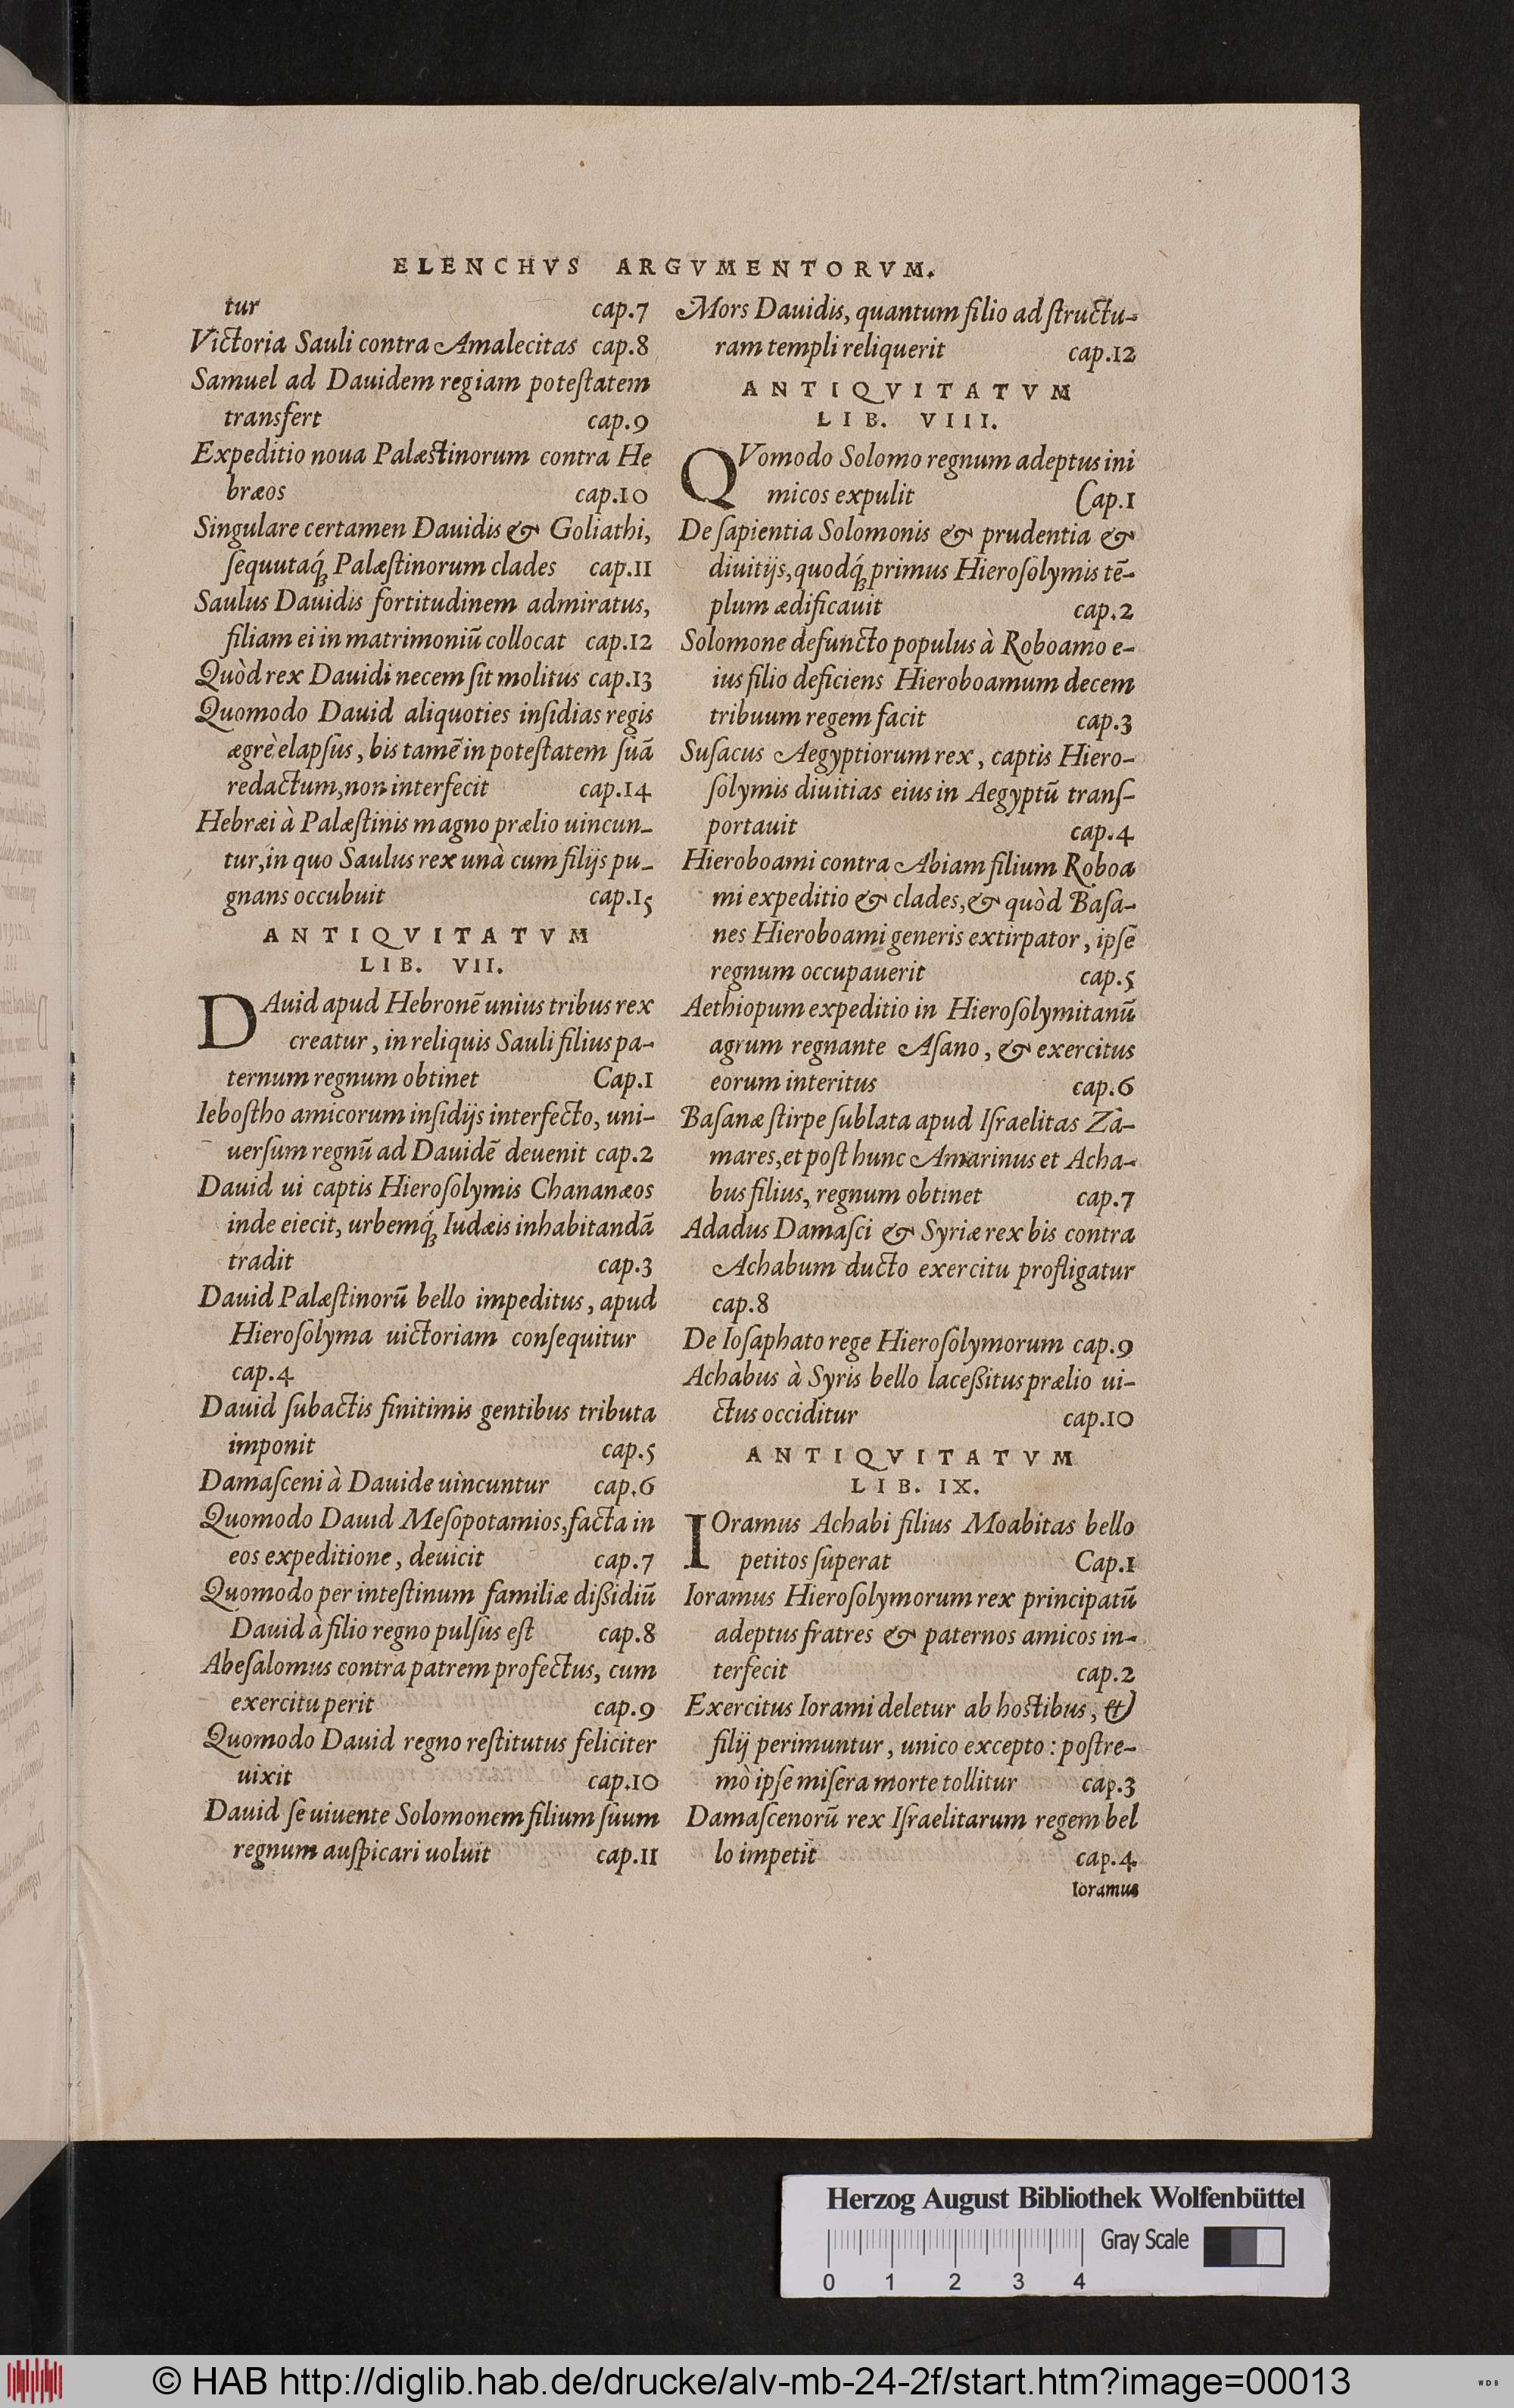 ELENCHVS ARGVMENTORVM.
tur cap.7
Victoria Sauli contra Amalecitas cap.8
Samuel ad Dauidem regiam poteſtatem
transfert cap.9
Expeditio noua Palæstinorum contra He
bræos cap.10
Singulare certamen Dauidis & Goliathi,
ſequutaq́ꝫ Palæſtinorum clades cap.11
Saulus Dauidis fortitudinem admiratus,
filiam ei in matrimoniũ collocat cap.12
Quòd rex Dauidi necem ſit molitus cap.13
Quomodo Dauid aliquoties inſidias regis
ægrè elapſus, bis tamẽ in poteſtatem ſuã
redactum, non interfecit cap.14
Hebræi à Palæſtinis magno prælio uincun-
tur, in quo Saulus rex unà cum filijs pu-
gnans occubuit cap.15
ANTIQVITATVM
LIB. VII.
DAuid apud Hebronẽ unius tribus rex
creatur, in reliquis Sauli filius pa-
ternum regnum obtinet Cap.1
Ieboſtho amicorum inſidijs interfecto, uni-
uerſum regnũ ad Dauidẽ deuenit cap.2
Dauid ui captis Hieroſolymis Chananæos
inde eiecit, urbemq́ꝫ Iudæis inhabitandã
tradit cap.3
Dauid Palæſtinorũ bello impeditus, apud
Hieroſolyma uictoriam conſequitur
cap.4
Dauid ſubactis finitimis gentibus tributa
imponit cap.5
Damaſceni à Dauide uincuntur cap.6
Quomodo Dauid Meſopotamios, facta in
eos expeditione, deuicit cap.7
Quomodo per inteſtinum familiæ dißidiũ
Dauid à filio regno pulſus eſt cap.8
Abeſalomus contra patrem profectus, cum
exercitu perit cap.9
Quomodo Dauid regno reſtitutus feliciter
uixit cap.10
Dauid ſe uiuente Solomonem filium ſuum
regnum auſpicari uoluit cap.11
Mors Dauidis, quantum filio ad ſtructu-
ram templi reliquerit cap.12
ANTIQVITATVM
LIB. VIII.
QVomodo Solomo regnum adeptus ini
micos expulit Cap.1
De ſapientia Solomonis & prudentia &
diuitijs, quodq́ꝫ primus Hieroſolymis tẽ-
plum ædificauit cap.2
Solomone defuncto populus à Roboamo e-
ius filio deficiens Hieroboamum decem
tribuum regem facit cap.3
Suſacus Aegyptiorum rex, captis Hiero-
ſolymis diuitias eius in Aegyptũ tranſ-
portauit cap.4
Hieroboami contra Abiam filium Roboa
mi expeditio & clades, & quòd Baſa-
nes Hieroboami generis extirpator, ipſẽ
regnum occupauerit cap.5
Aethiopum expeditio in Hieroſolymitanũ
agrum regnante Aſano, & exercitus
eorum interitus cap.6
Baſanæ ſtirpe ſublata apud Iſraelitas Za-
mares, et poſt hunc Amarinus et Acha-
bus filius, regnum obtinet cap.7
Adadus Damaſci & Syriæ rex bis contra
Achabum ducto exercitu profligatur
cap.8
De Ioſaphato rege Hieroſolymorum cap.9
Achabus à Syris bello laceßitus prælio ui-
ctus occiditur cap.10
ANTIQVITATVM
LIB. IX.
IOramus Achabi filius Moabitas bello
petitos ſuperat Cap.1
Ioramus Hieroſolymorum rex principatũ
adeptus fratres & paternos amicos in-
terfecit cap.2
Exercitus Iorami deletur ab hostibus, &
filij perimuntur, unico excepto: poſtre-
mò ipſe miſera morte tollitur cap.3
Damaſcenorũ rex Iſraelitarum regem bel
lo impetit cap.4
Ioramus
Herzog August Bibliothek Wolfenbüttel
Gray Scale
0 1 2 3 4
© HAB http://diglib.hab.de/drucke/alv-mb-24-2f/start.htm?image=00013
WDB